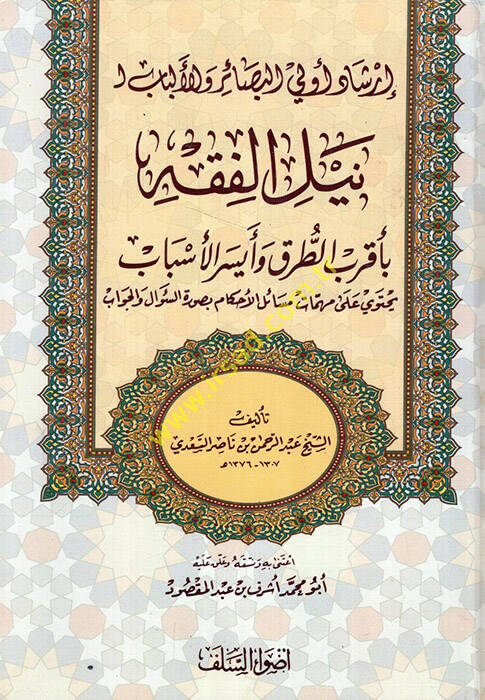 إرشاد أولي البصائر والألباب ل
نيل الفقه
بأقرب الطرق وأيسر الأسباب
يحتوي على مهمات مسائل الأحكام بصورة السؤال والجواب
تأليف
الشيخ عبد الرحمن بن ناصر السعدي
١٣٠٧ - ١٣٧٦هـ
اعتنى به ونسقه وعلق عليه
أبو محمد أشرف بن عبد المقصود
أضواء السلف